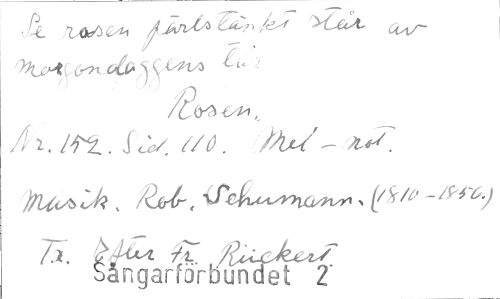 Se rosen pärlstänkt står av
morgondaggens tår
Rosen.
Nr. 152. Sid. 110. Mel-not.
Musik. Rob. Schumann. (1810-1856.)
Tx. Efter Fr. Rückert
Sångarförbundet 2